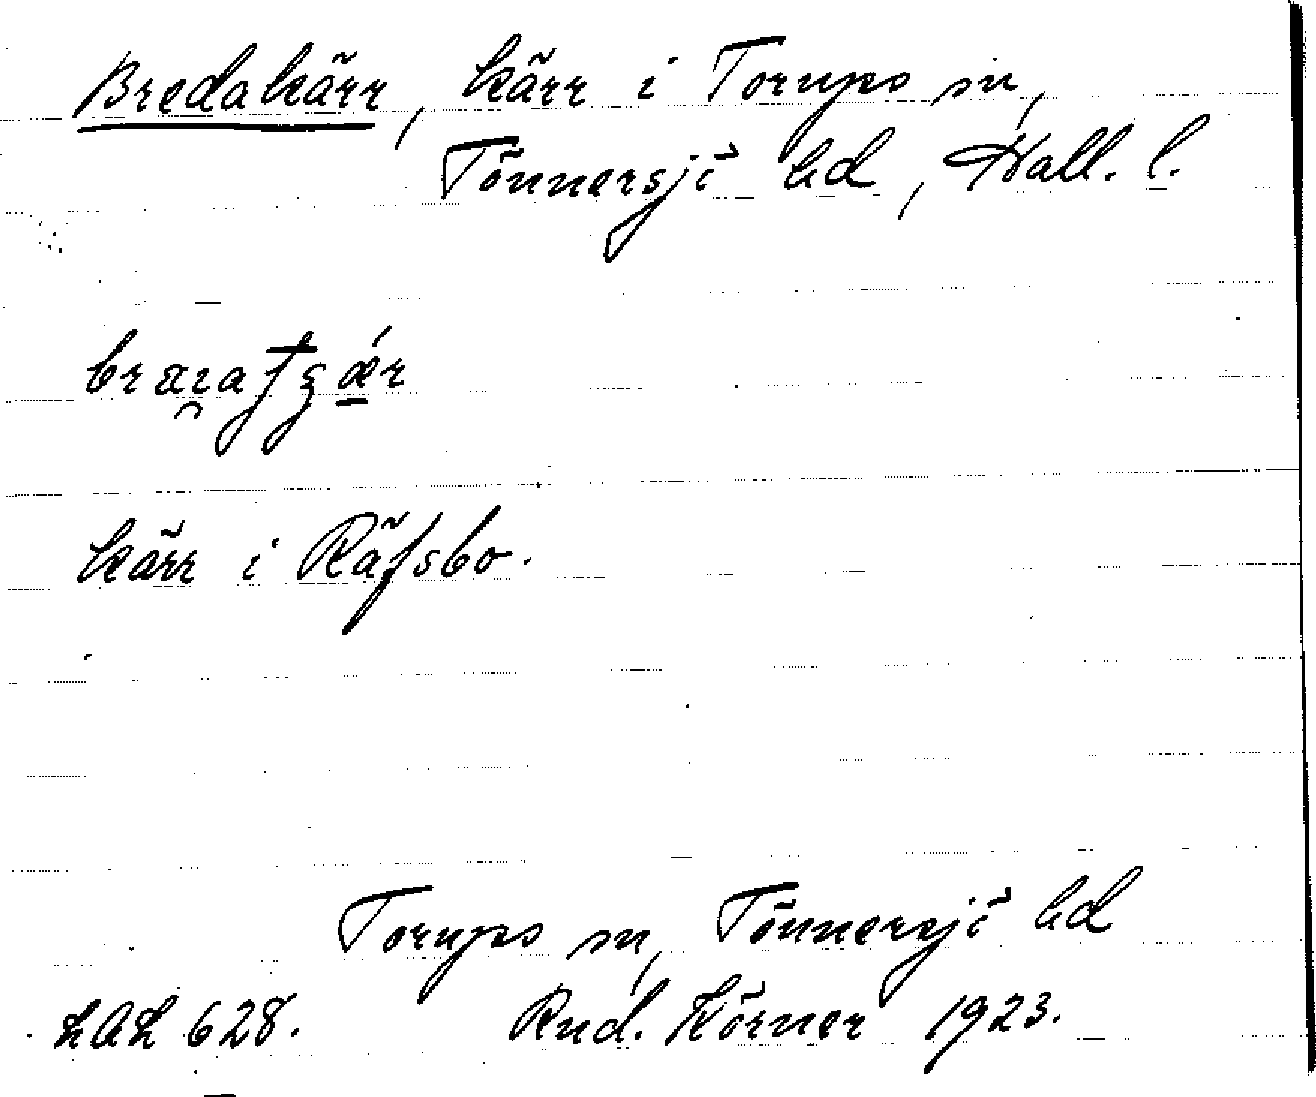 Bredakärr, kärr i Torups sn,
Tönnersjö hd, Hall. l.
kärr i Räfsbo.
Torups sn, Tönnersjö hd
LAL 628. Rud. Körner 1923.